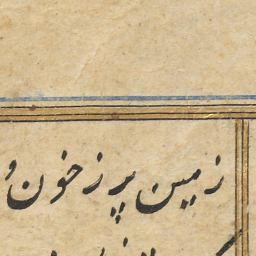 زمین پر ز خون و